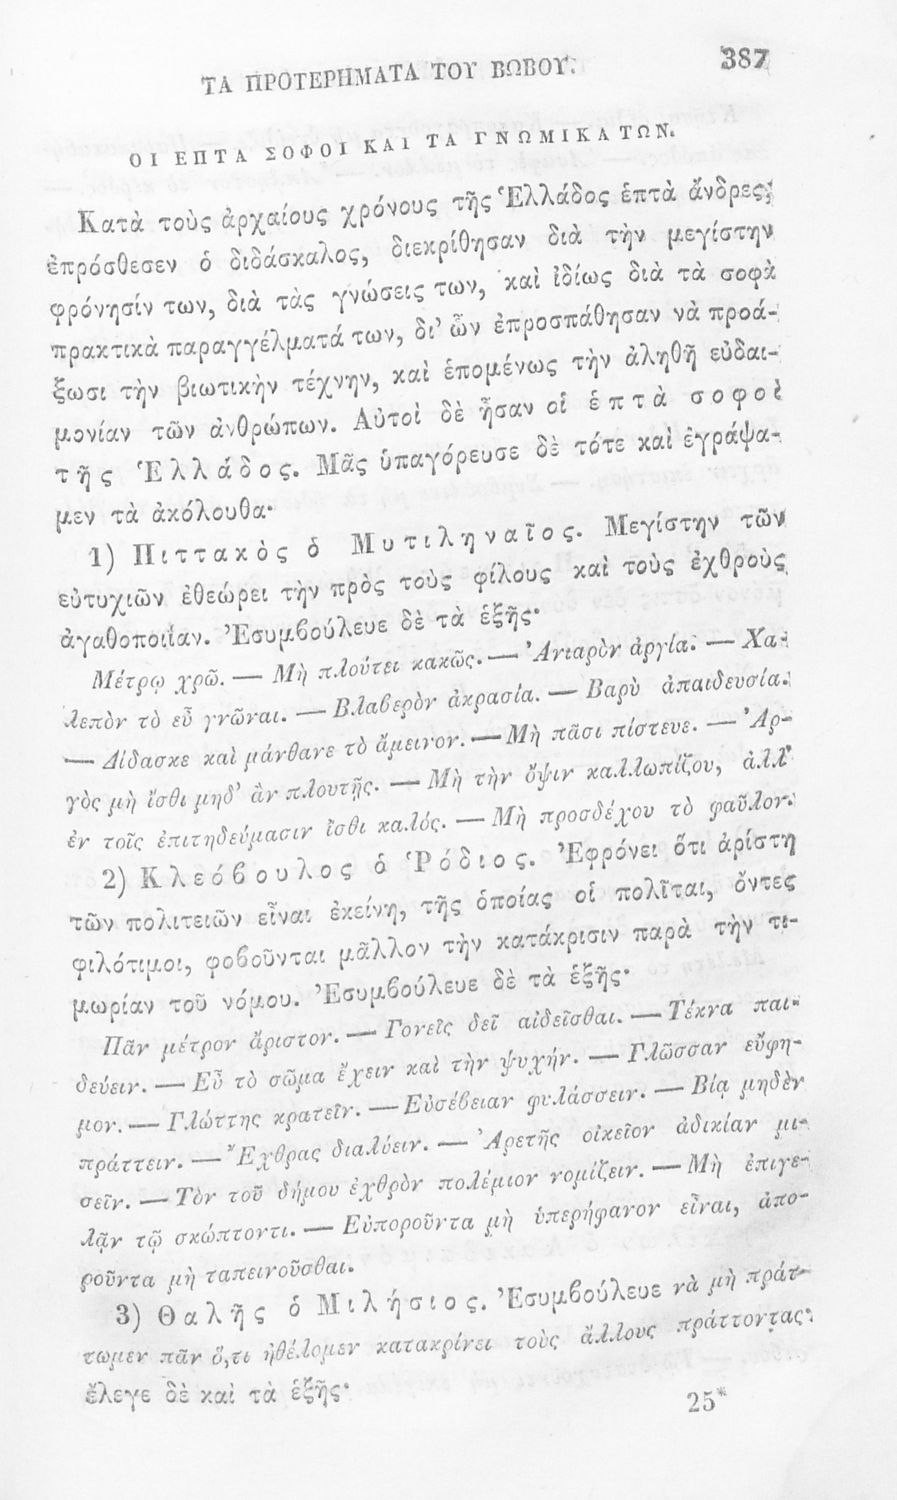 ΤΑ ΠΡΟΤΕΡΗΜΑΤΑ ΤΟΥ ΒΩΒΟΥ. 387
ΟΙ ΕΠΤΑ ΣΟΦΟΙ ΚΑΙ ΤΑ ΓΝΩΜΙΚΑ ΤΩΝ.
Κατὰ τοὺς ἀρχαίους χρόνους τῆς Ἑλλάδος ἑπτὰ ἄνδρες,
ἐπρόσθεσεν ὁ διδάσκαλος, διεκρίθησαν διὰ τὴν μεγίστην
φρόνησίν των, διὰ τὰς γνώσεις των, καὶ ἰδίως διὰ τὰ σοφὰ
πρακτικὰ παραγγέλματά των, δι' ὧν ἐπροσπάθησαν νὰ προά-
ξωσι τὴν βιωτικὴν τέχνην, καὶ ἑπομένως τὴν ἀληθῆ εὐδαι-
μονίαν τῶν ἀνθρώπων. Αὐτοὶ δὲ ἦσαν οἱ ἑπτὰ σοφοὶ
τῆς Ἑλλάδος. Μᾶς ὑπαγόρευσε δὲ τότε καὶ ἐγράψα-
μεν τὰ ἀκόλουθα·
1) Πιττακὸς ὁ Μυτιληναῖος. Μεγίστην τῶν
εὐτυχιῶν ἐθεώρει τὴν πρὸς τοὺς φίλους καὶ τοὺς ἐχθροὺς
ἀγαθοποιΐαν. Ἐσυμβούλευε δὲ τὰ ἑξῆς·
Μέτρῳ χρῶ. — Μὴ πλούτει κακῶς. — Ἀνιαρὸν ἀργία. — Χα-
λεπὸν τὸ εὖ γνῶναι. — Βλαβερὸν ἀκρασία. — Βαρὺ ἀπαιδευσία.
— Δίδασκε καὶ μάνθανε τὸ ἄμεινον. — Μὴ πᾶσι πίστευε. — Ἀρ-
γὸς μὴ ἴσθι μηδ' ἂν πλουτῇς. — Μὴ τὴν ὄψιν καλλωπίζου, ἀλλ'
ἐν τοῖς ἐπιτηδεύμασιν ἴσθι καλός. — Μὴ προσδέχου τὸ φαῦλον.
2) Κλεόβουλος ὁ Ῥόδιος. Ἐφρόνει ὅτι ἀρίστη
τῶν πολιτειῶν εἶναι ἐκείνη, τῆς ὁποίας οἱ πολῖται, ὄντες
φιλότιμοι, φοβοῦνται μᾶλλον τὴν κατάκρισιν παρὰ τὴν τι-
μωρίαν τοῦ νόμου. Ἐσυμβούλευε δὲ τὰ ἑξῆς·
Πᾶν μέτρον ἄριστον. — Γονεῖς δεῖ αἰδεῖσθαι. — Τέκνα παι-
δεύειν. — Εὖ τὸ σῶμα ἔχειν καὶ τὴν ψυχήν. — Γλῶσσαν εὔφη-
μον. — Γλώττης κρατεῖν. — Εὐσέβειαν φυλάσσειν. — Βίᾳ μηδὲν
πράττειν. — Ἔχθρας διαλύειν. — Ἀρετῆς οἰκεῖον ἀδικίαν μι-
σεῖν. — Τὸν τοῦ δήμου ἐχθρὸν πολέμιον νομίζειν. — Μὴ ἐπιγε-
λᾷν τῷ σκώπτοντι. — Εὐποροῦντα μὴ ὑπερήφανον εἶναι, ἀπο-
ροῦντα μὴ ταπεινοῦσθαι.
3) Θαλῆς ὁ Μιλήσιος. Ἐσυμβούλευε νὰ μὴ πράτ-
τωμεν πᾶν ὅ,τι ἠθέλομεν κατακρίνει τοὺς ἄλλους πράττοντας·
ἔλεγε δὲ καὶ τὰ ἑξῆς·
25*